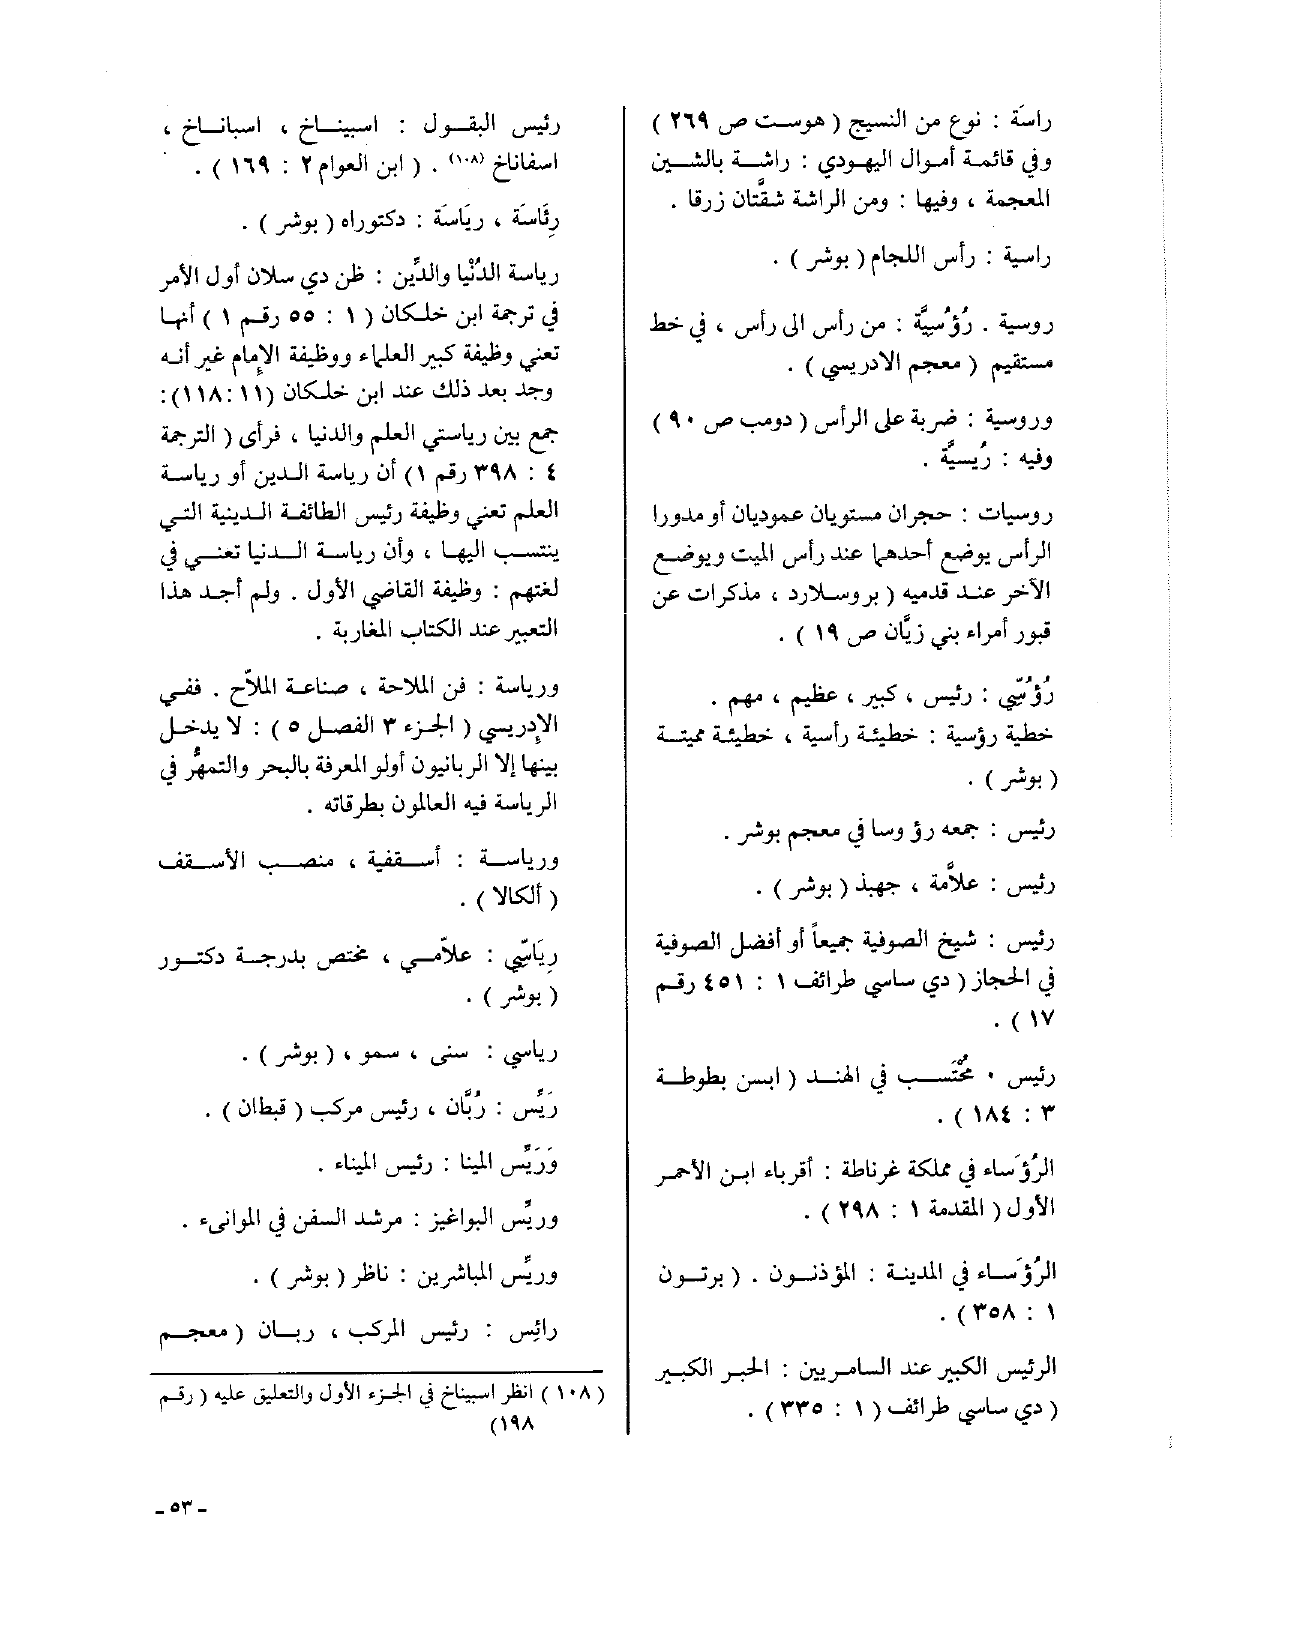 راسَة : نوع من النسيج ( هوست ص ٢٦٩ )
وفي قائمة أموال اليهودي : راشة بالشين
المعجمة ، وفيها : ومن الراشة شقَّتان زرقا .
راسية : رأس اللجام ( بوشر ) .
روسية . رُؤْسُيَّة : من رأس الى رأس ، في خط
مستقيم ( معجم الادريسي ) .
وروسية : ضربة على الرأس ( دومب ص ٩٠ )
وفيه : رُيسيَّة .
روسيات : حجران مستويان عموديان أو مدورا
الرأس يوضع أحدهما عند رأس الميت ويوضع
الآخر عند قدميه ( بروسلارد ، مذكرات عن
قبور أمراء بني زيَّان ص ١٩ ) .
رُؤُسّي : رئيس ، كبير ، عظيم ، مهم .
خطية رؤسية : خطيئة رأسية ، خطيئة مميتة
( بوشر ) .
رئيس : جمعه رؤوسا في معجم بوشر .
رئيس : علاَّمة ، جهبذ ( بوشر ) .
رئيس : شيخ الصوفية جميعاً أو أفضل الصوفية
في الحجاز ( دي ساسي طرائف ١ : ٤٥١ رقم
١٧ ) .
رئيس . مُحْتَسب في الهند ( ابن بطوطة
٣ : ١٨٤ ) .
الرُؤَساء في مملكة غرناطة : أقرباء ابن الأحمر
الأول ( المقدمة ١ : ٢٩٨ ) .
الرُؤَساء في المدينة : المؤذنون . ( برتون
١ : ٣٥٨ ) .
الرئيس الكبير عند السامريين : الحبر الكبير
( دي ساسي طرائف ( ١ : ٣٣٥ ) .
رئيس البقول : اسبيناخ ، اسباناخ ،
اسفاناخ (١٠٨) . ( ابن العوام ٢ : ١٦٩ ) .
رِئَاسَة ، ريَاسَة : دكتوراه ( بوشر ) .
رياسة الدُنْيا والدِّين : ظن دي سلان أول الأمر
في ترجمة ابن خلكان ( ١ : ٥٥ رقم ١ ) أنها
تعني وظيفة كبير العلماء ووظيفة الإمام غير أنه
وجد بعد ذلك عند ابن خلكان (١١ :١١٨) :
جمع بين رياستي العلم والدنيا ، فرأى ( الترجمة
٤ : ٣٩٨ رقم ١) أن رياسة الدين أو رياسة
العلم تعني وظيفة رئيس الطائفة الدينية التي
ينتسب اليها ، وأن رياسة الدنيا تعني في
لغتهم : وظيفة القاضي الأول . ولم أجد هذا
التعبير عند الكتاب المغاربة .
ورياسة : فن الملاحة ، صناعة الملاّح . ففي
الإدريسي ( الجزء ٣ الفصل ٥ ) : لا يدخل
بينها إلا الربانيون أولو المعرفة بالبحر والتمهُّر في
الرياسة فيه العالمون بطرقاته .
ورياسة : أسقفية ، منصب الأسقف
( ألكالا ) .
رِيَاسّي : علاّمي ، مختص بدرجة دكتور
( بوشر ) .
رياسي : سنى ، سمو ، ( بوشر ) .
رَيّس : رُبَّان ، رئيس مركب ( قبطان ) .
وَرَيَّس المينا : رئيس الميناء .
وريَّس البواغيز : مرشد السفن في الموانىء .
وريَّس المباشرين : ناظر ( بوشر ) .
رائِس : رئيس المركب ، ربان ( معجم
( ١٠٨ ) انظر اسبيناخ في الجزء الأول والتعليق عليه ( رقم
١٩٨)
- ٥٣ -